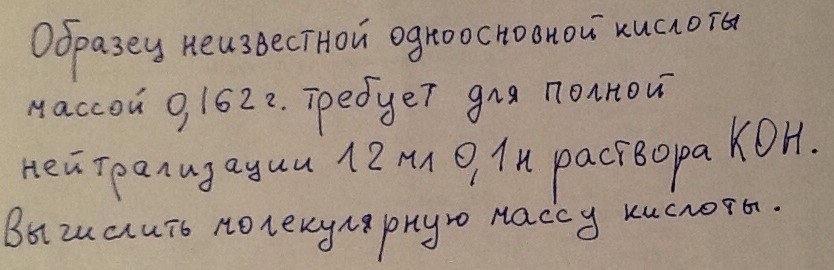 Образец неизвестной одноосновной кислоты
массой 0,162г. требует для полной
нейтрализации 12 мл 0,1н раствора KOH.
Вычислить молекулярную массу кислоты.